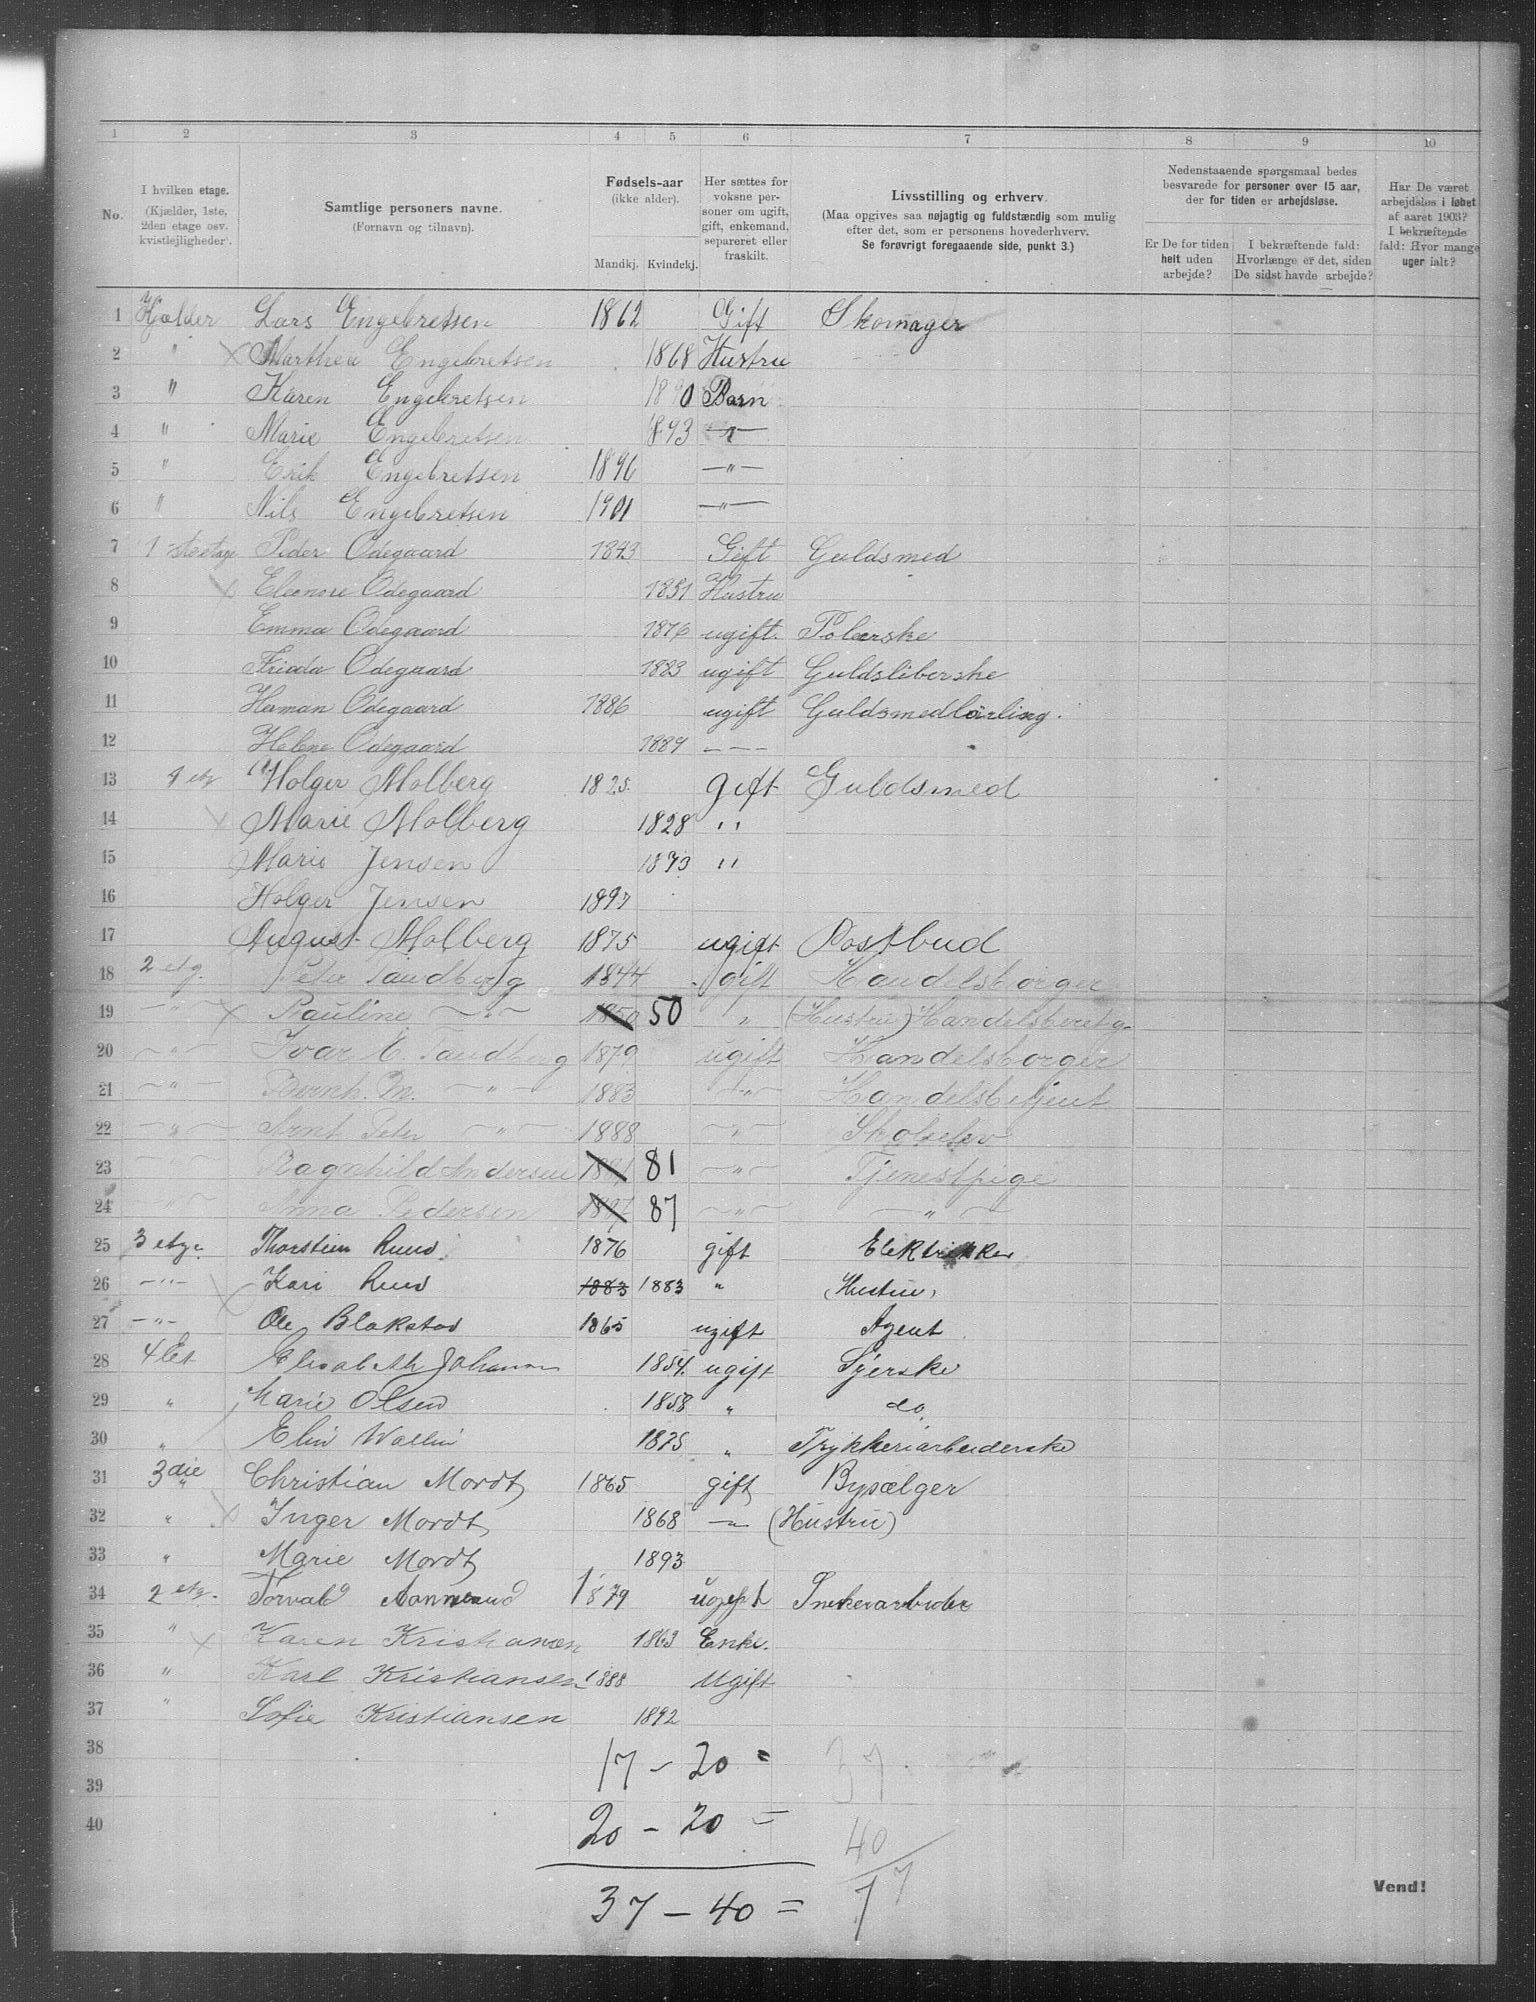 1 2 3 4 5 6 7 8 9 10
No.
I hvilken etage.
(Kjælder, 1ste,
2den etage osv.
kvistlejligheder).
Samtlige personers navne.
(Fornavn og tilnavn).
Fødsels-aar
(ikke alder).
Mandkj. Kvindekj.
Her sættes for
voksne per-
soner om ugift,
gift, enkemand,
separeret eller
fraskilt.
Livsstilling og erhverv.
(Maa opgives saa nøjagtig og fuldstændig som mulig
efter det, som er personens hovederhverv.
Se forøvrigt foregaaende side, punkt 3.)
Nedenstaaende spørgsmaal bedes
besvarede for personer over 15 aar,
der for tiden er arbejdsløse.
Er De for tiden
helt uden
arbejde?
I bekræftende fald:
Hvorlænge er det, siden
De sidst havde arbejde?
Har De været
arbejdsløs i løbet
af aaret 1903?
I bekræftende
fald: Hvor mange
uger ialt?
1 Kjælder Lars Engebretsen 1862 Gift Skomager
2 " x Marthea Engebretsen 1868 Hustru
3 " Karen Engebretsen 1890 Barn
4 " Marie Engebretsen 1893 —"—
5 " Erik Engebretsen 1896 —"—
6 " Nils Engebretsen 1901 —"—
7 1 ste etage Peder Odegaard 1843 Gift Guldsmed
8 x Eleonore Odegaard 1851 Hustru
9 Emma Odegaard 1876 ugift. Polerske
10 Frieda Odegaard 1883 ugift Guldsliberske
11 Herman Odegaard 1886 ugift Guldsmedlærling.
12 Helene Odegaard 1889 - - -
13 1 etg Holger Molberg 1825. gift Guldsmed
14 x Marie Molberg 1828 "
15 Marie Jensen 1873 "
16 Holger Jensen 1897
17 August Molberg 1875 ugift Postbud
18 2 etg. Peter Tandberg 1844 gift Handelsborger
19 —"— x Pauline —"— 1850 50 " (Hustru) Handelsboretg.
20 —"— Ivar A. Tandberg 1879 ugift Handelsborger
21 —"— Bernh. M. —"— 1883 —"— Handelsbetjent
22 —"— Arnt Peter —"— 1888 —"— Skoleelev
23 —"— Ragnhild Andersen 1881 81 —"— Tjenestpige
24 —"— Anna Pedersen 1887 87 —"— —"—
25 3 etg. Thorstein Ruud 1876 gift Elektrikker
26 —"— Kari Ruud 1883 1883 " (Hustru)
27 —"— Ole Blakstad 1865 ugift Agent
28 4 Et Elisabeth Johansen 1854. ugift Syerske
29 " Marie Olsen 1858 " do.
30 " Elin Wallin 1875 " Trykkeriarbeiderske
31 3 die " Christian Mordt 1865 gift Bysælger
32 " x Inger Mordt 1868 —"— (Hustru)
33 " Marie Mordt 1893
34 2 etg. Torvald 1879 ugift Snekerarbeider
35 " x Karen Kristiansen 1863 Enke.
36 " Karl Kristiansen 1888 Ugift
37 " Sofie Kristiansen 1892
38 17 - 20 = 37
39
40 20 - 20 = 40
37 - 40 = 77
Vend!